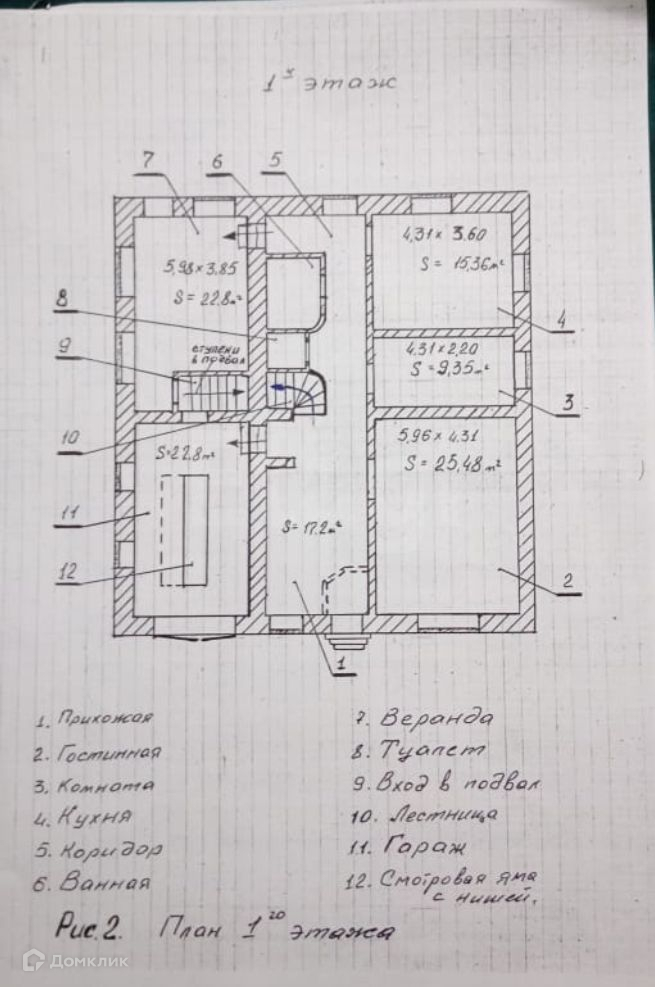 1й этаж
7
6
5
4,31 × 3.60
S = 15,36 м²
5,98 × 3.85
S = 22.8 м²
8
4
9
ступени
в подвал
4.31 × 2,20
S = 9,35 м²
3
10
S=22,8 м²
5,96 × 4.31
S = 25,48 м²
11
S = 17.2 м²
12
2
1
1. Прихожая
2. Гостинная
3. Комната
4. Кухня
5. Коридор
6. Ванная
7. Веранда
8. Туалет
9. Вход в подвал
10. Лестница
11. Гараж
12. Смотровая яма
с нишей.
Рис. 2. План 1го этажа
Домклик